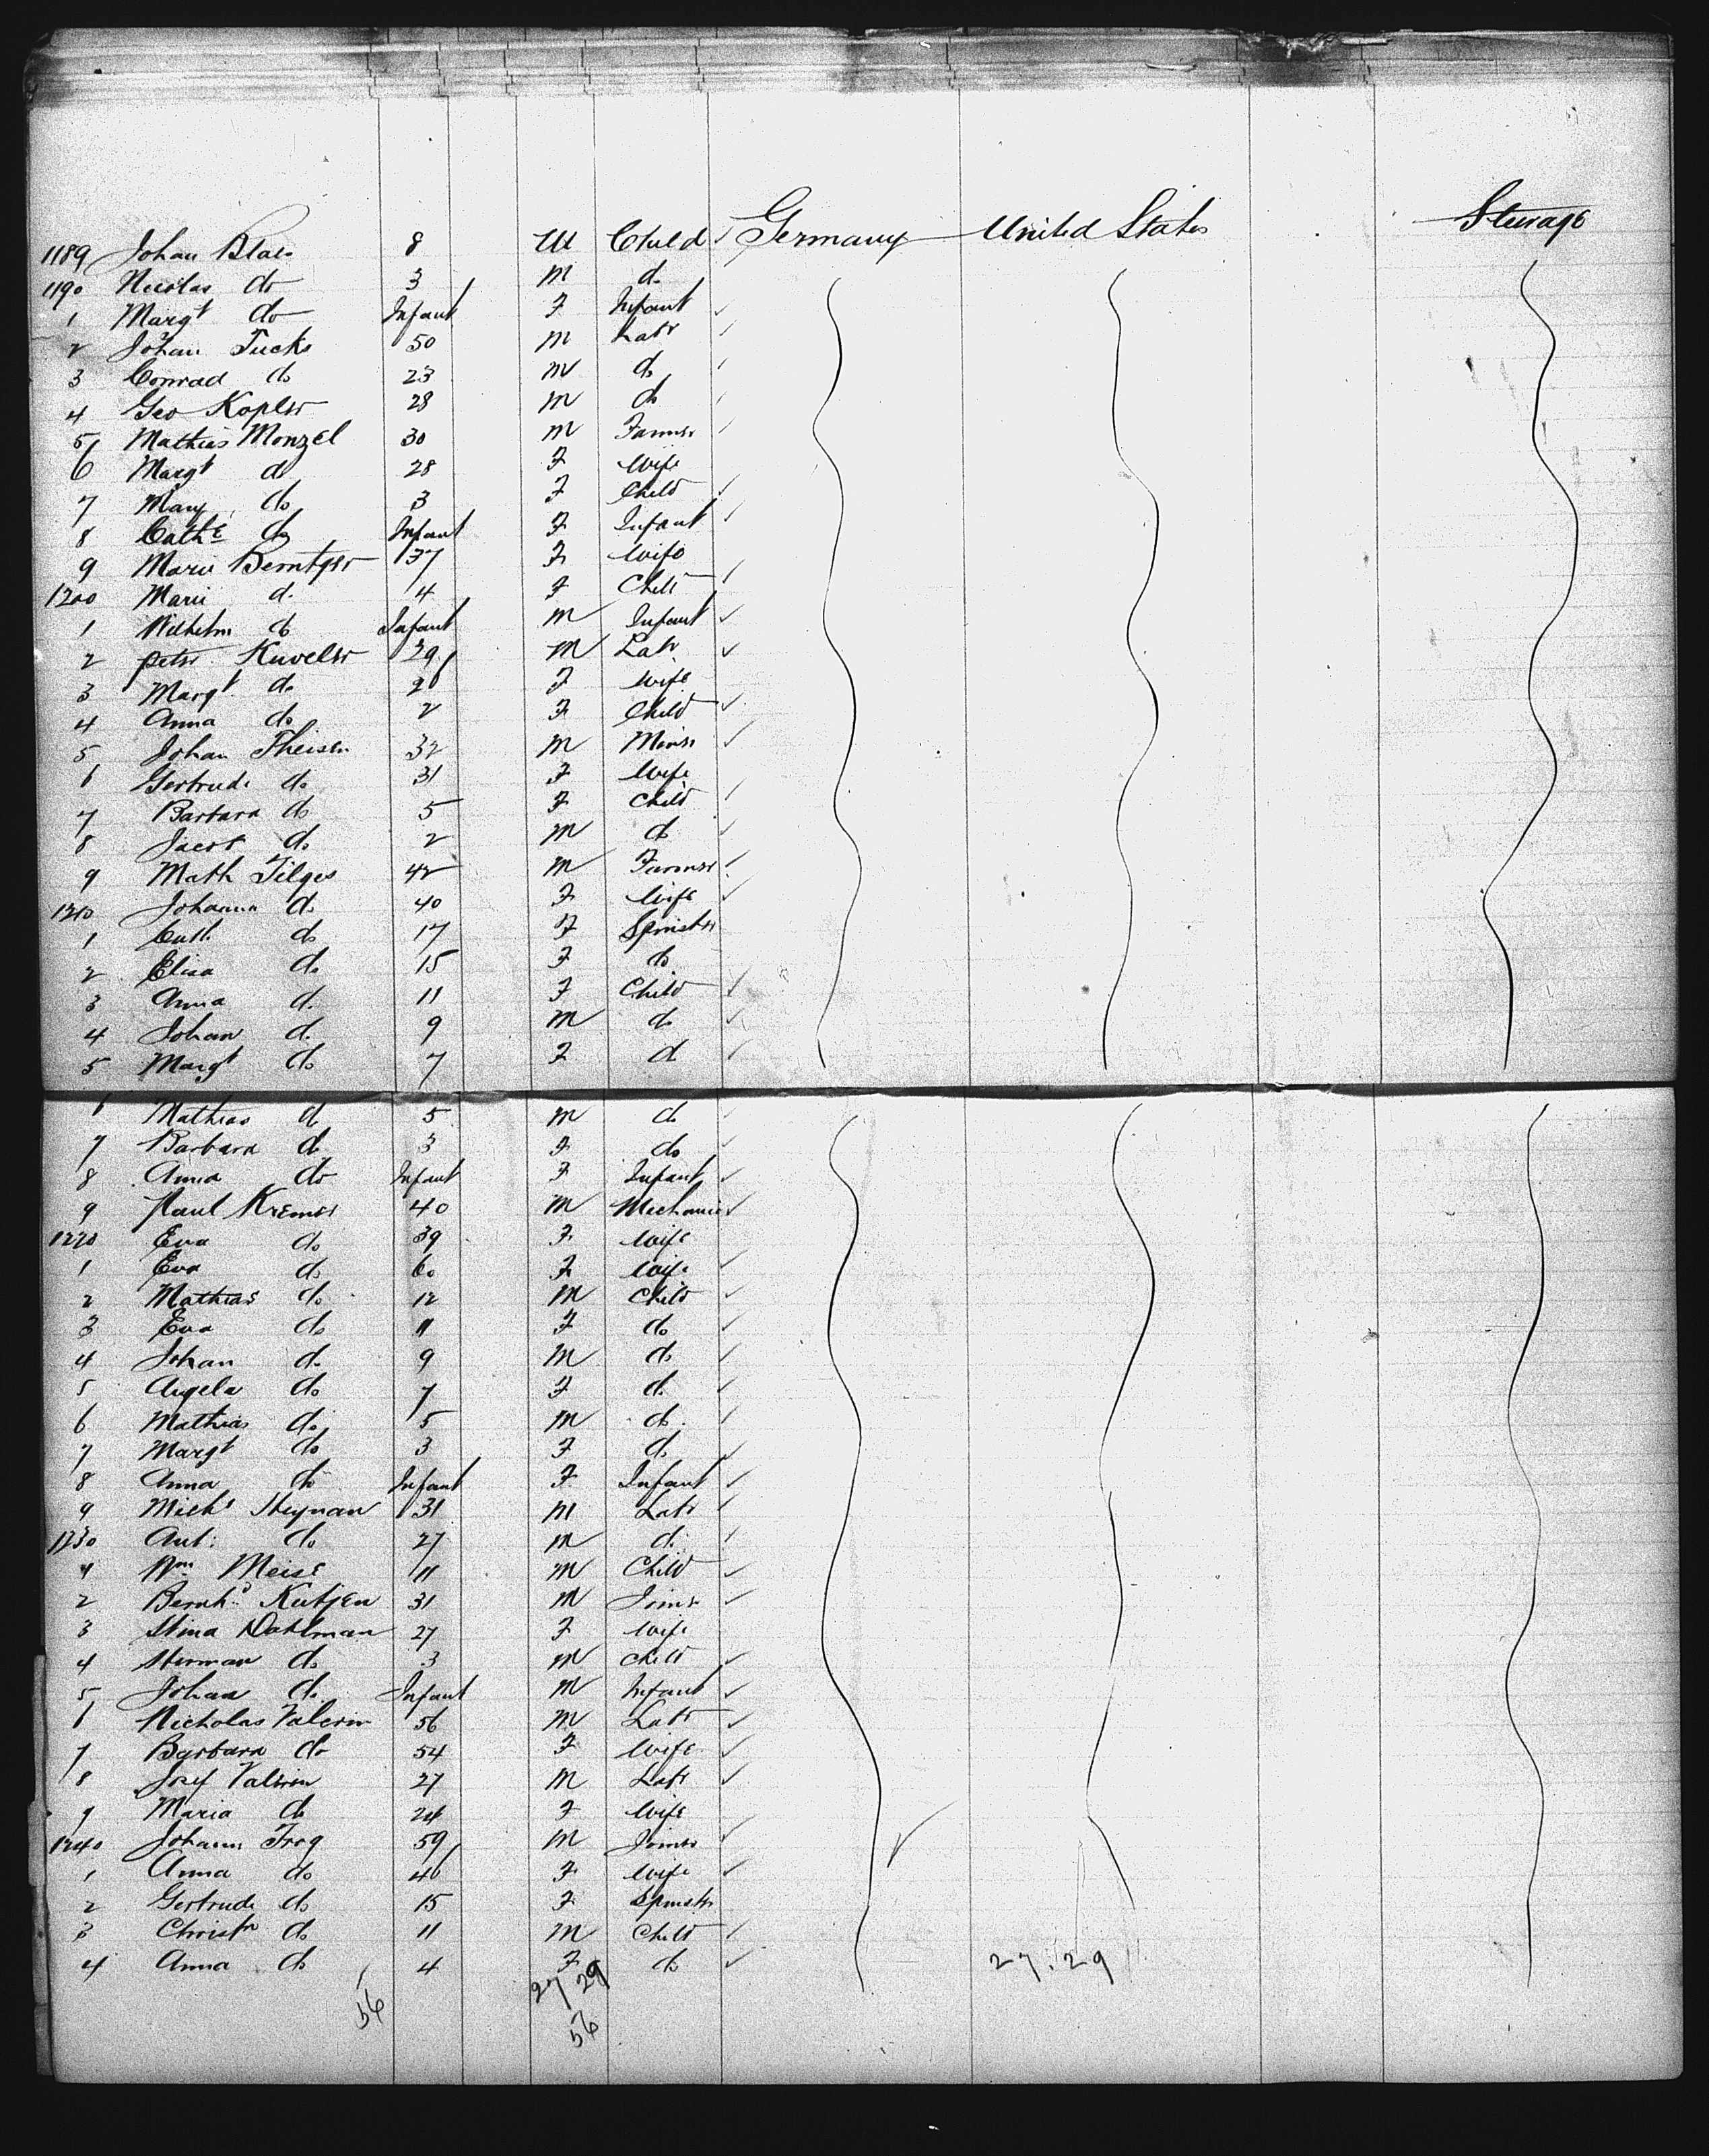 1189 Johan Blaes 8 M Child Germany United States Steerage
1190 Nicolas do 3 M do
1 Margt do Infant F Infant
2 Johan Fucks 50 M Labr
3 Conrad do 23 M do
4 Geo Kopler 28 M do
5 Mathias Monzel 30 M Farmer
6 Margt do 28 F Wife
7 Mary do 3 F Child
8 Cathe do Infant F Infant
9 Marie 37 F Wife
1200 Marie do 4 F Child
1 Wilhelm do Infant M Infant
2 Peter Kuveler 29 M Labr
3 Margt do 26 F Wife
4 Anna do 2 F Child
5 Johan Theisen 32 M Miner
6 Gertrude do 31 F Wife
7 Barbara do 5 F Child
8 Jacob do 2 M do
9 Math Tilges 42 M Farmer
1210 Johanna do 40 F Wife
1 Cath do 17 F Spinstr
2 Elisa do 15 F do
3 Anna do 11 F Child
4 Johan do 9 M do
5 Margt do 7 F do
6 Mathias do 5 M do
7 Barbara do 3 F do
8 Anna do Infant F Infant
9 Paul Kremer 40 M Mechanic
1220 Eva do 39 F Wife
1 Eva do 60 F Wife
2 Mathias do 12 M Child
3 Eva do 11 F do
4 Johan do 9 M do
5 Angela do 7 F do
6 Mathias do 5 M do
7 Margt do 3 F do
8 Anna do Infant F Infant
9 Michl 31 M Labr
1230 Ant: do 27 M do
1 Wm Meise 11 M Child
2 Bernhd Kutjen 31 M Joinr
3 Stina Dahlman 27 F Wife
4 Herman do 3 M Child
5 Johan do Infant M Infant
6 Nicholas Valerin 56 M Labr
7 Barbara do 54 F Wife
8 Josef Valerin 27 M Labr
9 Maria do 24 F Wife
1240 Johann Frog 59 M Joiner
1 Anna do 46 F Wife
2 Gertrude do 15 F Spinstr
3 Christn do 11 M Child
4 Anna do 4 F do
27 29 27.29
56 56